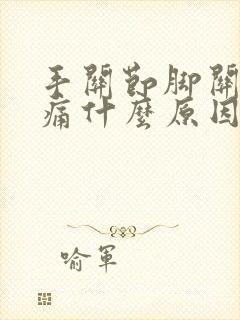 手關節脚關
痛什麼原因
喻軍